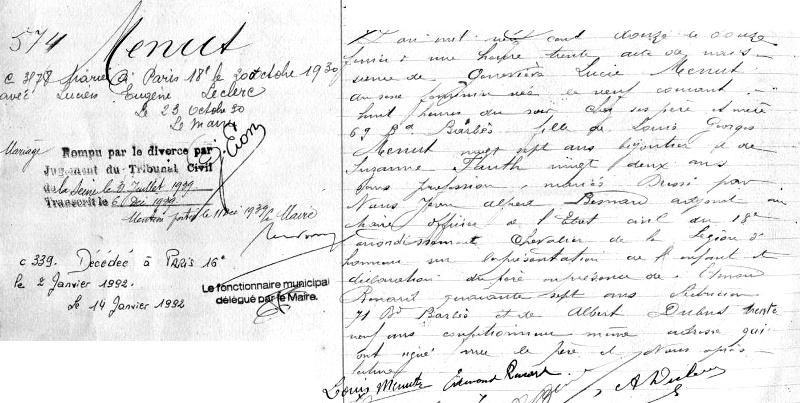 574 Menut
c 3878 Mariée à Paris 18e le 20 octobre 1930
avec Lucien Eugène Leclerc
Le 23 Octobre 30
Le Maire
Mariage Rompu par le divorce par
Jugement du Tribunal Civil
de la Seine le 3 Juillet 1939
Transcrit le 6 Déc 1939
Mention portée le 11 Déc 1939 Le Maire
c 339. Décédée à Paris 16e
le 2 Janvier 1992.
Le 14 Janvier 1992
Le fonctionnaire municipal
délégué par le Maire.
L'an mil neuf cent douze le douze
à une heure trente acte de nais-
sance de Geneviève Lucie Menut
du sexe féminin née le neuf courant
huit heures du soir chez ses père et mère
69 Bd Barbès fille de Louis Georges
Menut vingt sept ans bijoutier et de
Suzanne vingt deux ans
sans profession, mariés Dressé par
Nous Jean Albert Besnard adjoint au
Maire officier de l'Etat civil du 18e
arrondissement Chevalier de la Légion d'
honneur sur la présentation de l'enfant et
déclaration du père en présence de : Edmond
Renard quarante sept ans
71 Bd Barbès et de Albert Dubus trente
neuf ans même adresse qui
ont signé avec le père et Nous après
lecture
Louis Menut Edmond Renard A Dubus